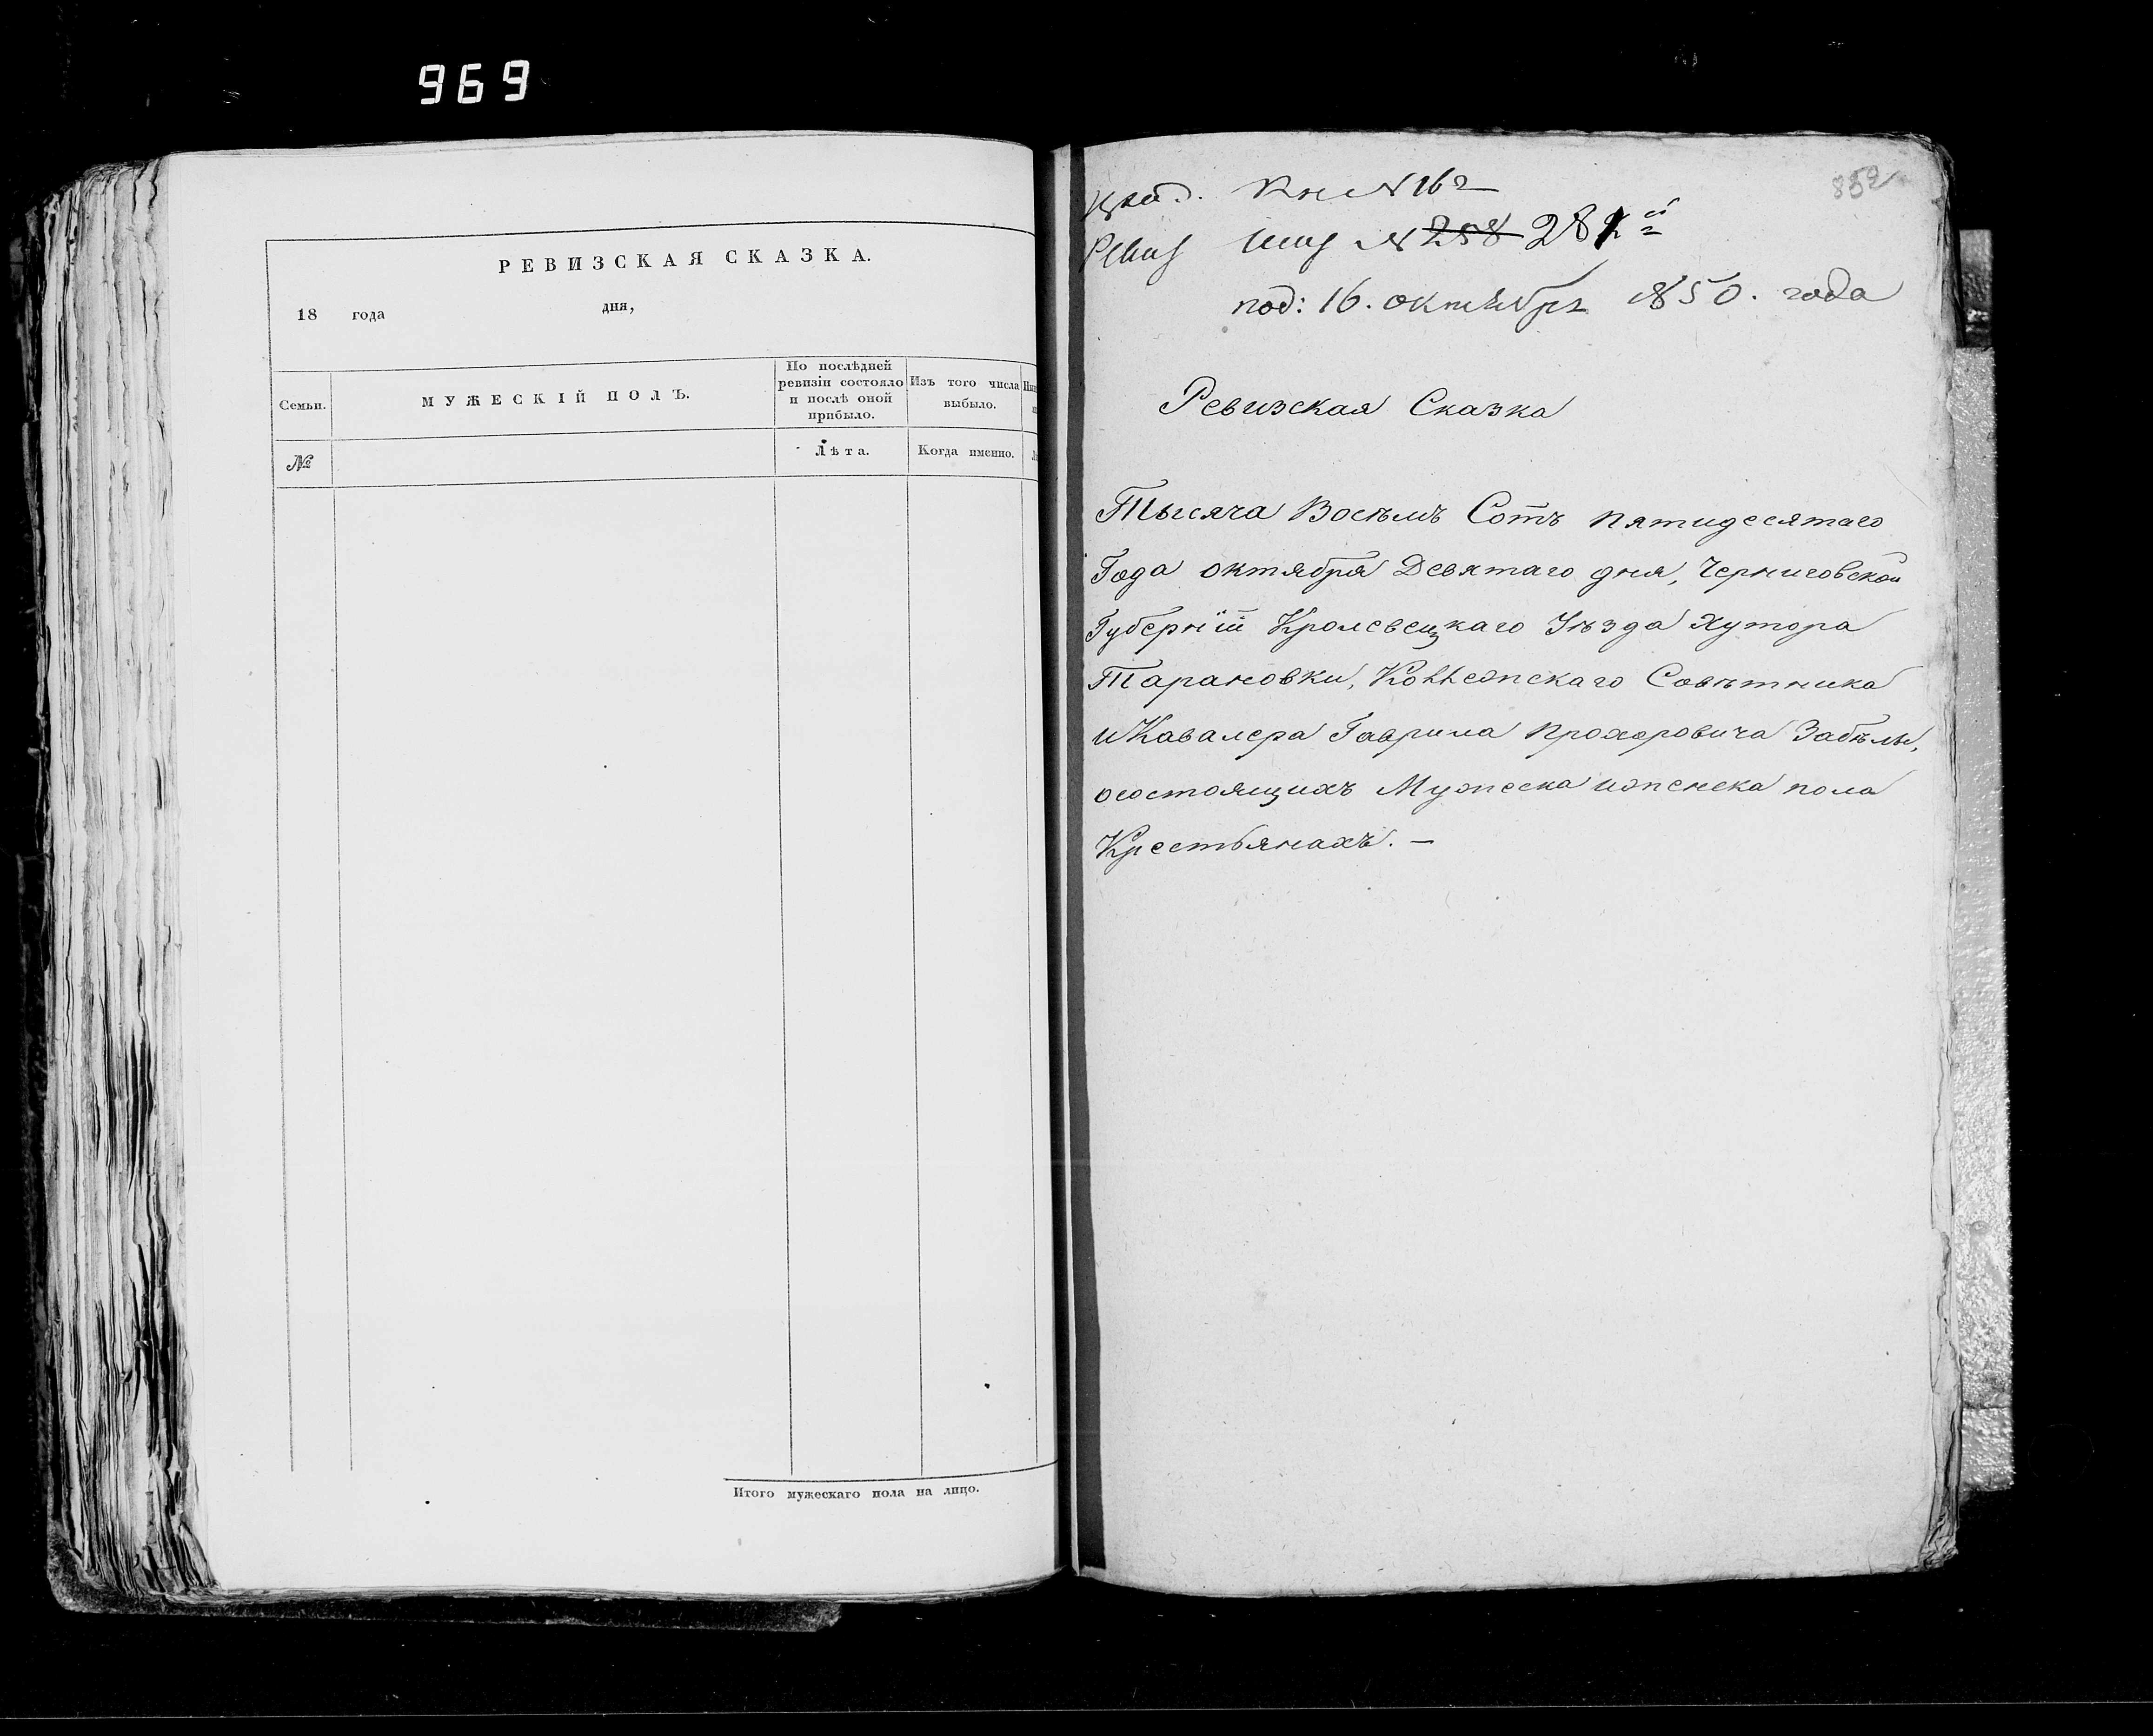 969
РЕВИЗСКАЯ СКАЗКА.
18 года дня,
Семьи.
МУЖЕСКІЙ ПОЛЪ.
По послѣдней
ревизіи состояло
и послѣ оной
прибыло.
Изъ того числа
выбыло.
№
Лѣта.
Когда именно.
Итого мужескаго пола на лицо.
852
Кн №162
№ 258 281
под: 16. октября 1850. года
Ревизская Сказка
Тысяча Восѣмъ Сотъ пятидесятаго
Года октября Девятаго дня, Черниговской
Губерніи Кролевецкаго Уѣзда Хутора
Тарановки, Коллежскаго Совѣтника
и Кавалера Гаврила Прохоровича Забѣлы,
осостоящихъ Мужеска иженска пола
Крестьянахъ. —